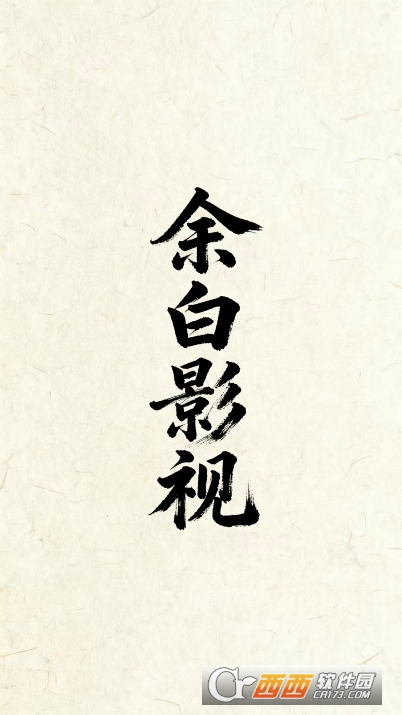 余白影视
西西软件园
CR173.COM